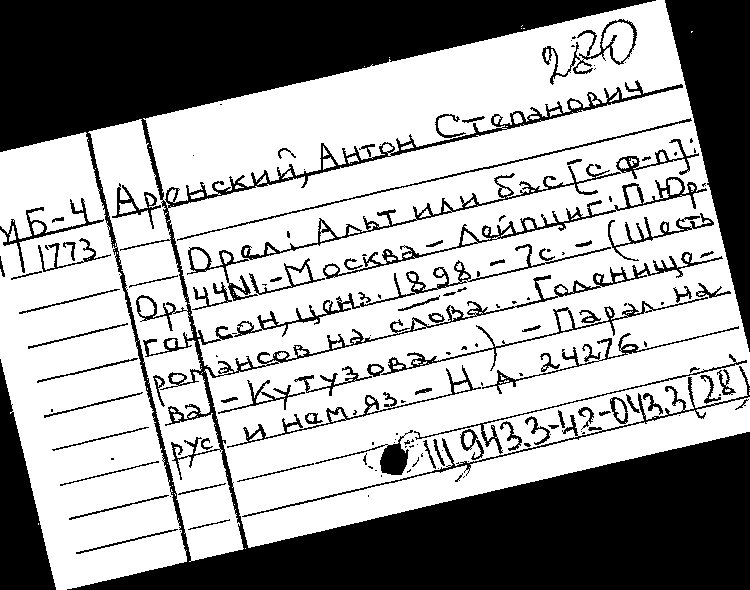 280
Аренский, Антон Степанович
МБ-4
1773
Орел: Альт или бас [с ф-п.]:
Ор. 44N1.-Москва-Лейпциг: П. Юр-
гансон, ценз. 1898. - 7с. - (Шесть
романсов на слова... Голенище-
ва - Кутузова...). - Парал. на
рус. и нем. яз. - Н. д. 24276.
943.3-42-043.3(28)